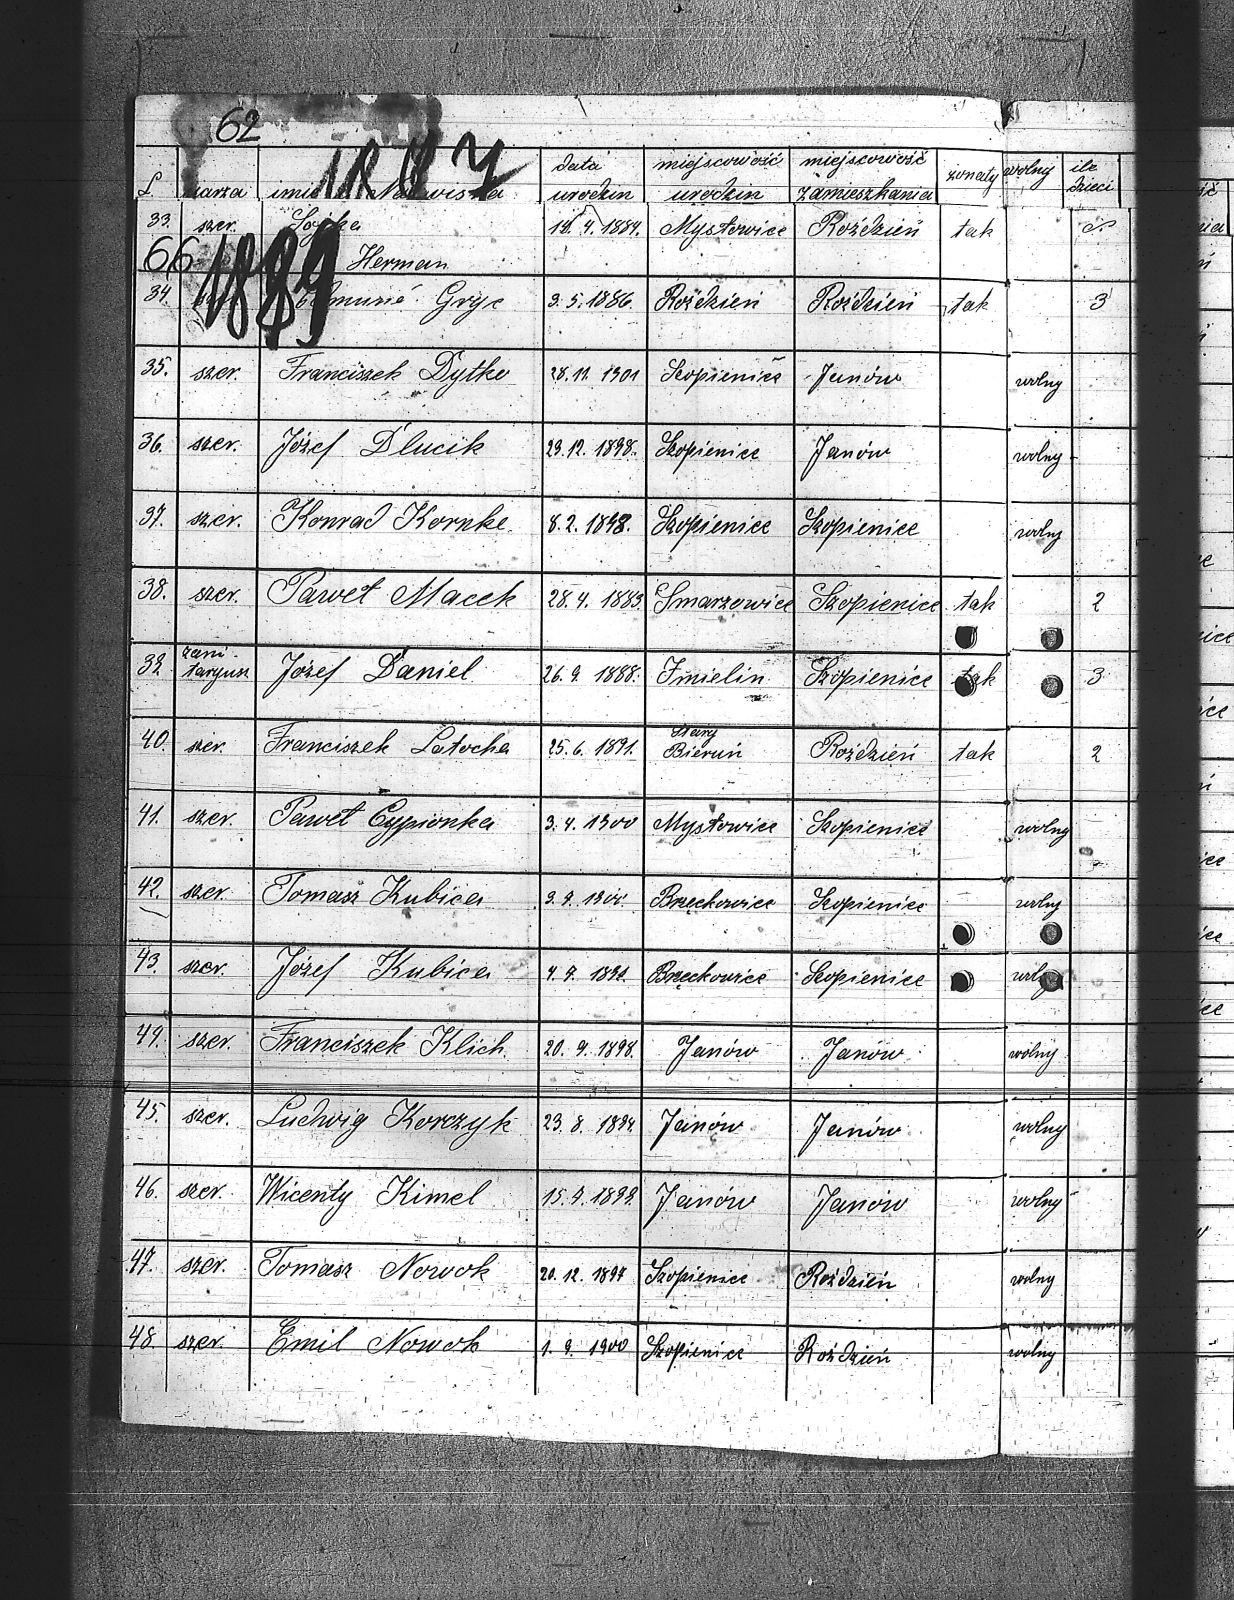 62
1887
L. szarża imię i Nazwisko data urodzin miejscowość urodzin miejscowość zamieszkania żonaty wolny ile dzieci
33. szer. Sojka 4. 1884. Mysłowice Roździeń tak
66 1889 Herman
34. Gryc 3. 5. 1886. Roździeń Roździeń tak 3
35. szer. Franciszek Dytko 28. 11. 1901 Szopienice Janów wolny
36. szer. Józef Dlucik 29. 12. 1898. Szopienice Janów wolny
37. szer. Konrad Kornke 8. 2. 1898. Szopienice Szopienice wolny
38. szer. Paweł Macek 28. 4. 1883. Smarzowice Szopienice tak 2
39. sani-
targusz Józef Daniel 26. 9. 1888. Imielin Szopienice tak 3
40. szer. Franciszek Latocha 25. 6. 1891. Stary Bieruń Roździeń tak 2
41. szer. Paweł Cypionka 3. 4. 1900 Mysłowice Szopienice wolny
42. szer. Tomasz Kubica 3. 9. 1900 Brzęckowice Szopienice wolny
43. szer. Józef Kubica Brzęckowice Szopienice wolny
44. szer. Franciszek Klich 20. 9. 1898. Janów Janów wolny
45. szer. Ludwig Korczyk 23. 8. Janów Janów wolny
46. szer. Wicenty Kimel Janów Janów wolny
47. szer. Tomasz Nowok 20. 12. 1897 Szopienice Roździeń wolny
48. szer. Emil Nowok 1. 9. 1900 Szopienice Roździeń wolny